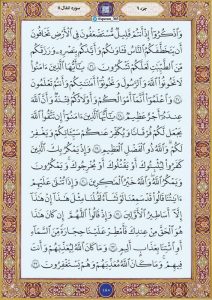 جزء ٩
سوره انفال ٨
وَاذْكُرُوا إِذْ أَنْتُمْ قَلِيلٌ مُسْتَضْعَفُونَ فِي الْأَرْضِ تَخَافُونَ
أَنْ يَتَخَطَّفَكُمُ النَّاسُ فَآوَاكُمْ وَأَيَّدَكُمْ بِنَصْرِهِ وَرَزَقَكُمْ
مِنَ الطَّيِّبَاتِ لَعَلَّكُمْ تَشْكُرُونَ ﴿٢٦﴾ يَا أَيُّهَا الَّذِينَ آمَنُوا
لَا تَخُونُوا اللَّهَ وَالرَّسُولَ وَتَخُونُوا أَمَانَاتِكُمْ وَأَنْتُمْ تَعْلَمُونَ
﴿٢٧﴾ وَاعْلَمُوا أَنَّمَا أَمْوَالُكُمْ وَأَوْلَادُكُمْ فِتْنَةٌ وَأَنَّ اللَّهَ
عِنْدَهُ أَجْرٌ عَظِيمٌ ﴿٢٨﴾ يَا أَيُّهَا الَّذِينَ آمَنُوا إِنْ تَتَّقُوا اللَّهَ
يَجْعَلْ لَكُمْ فُرْقَانًا وَيُكَفِّرْ عَنْكُمْ سَيِّئَاتِكُمْ وَيَغْفِرْ
لَكُمْ وَاللَّهُ ذُو الْفَضْلِ الْعَظِيمِ ﴿٢٩﴾ وَإِذْ يَمْكُرُ بِكَ الَّذِينَ
كَفَرُوا لِيُثْبِتُوكَ أَوْ يَقْتُلُوكَ أَوْ يُخْرِجُوكَ وَيَمْكُرُونَ
وَيَمْكُرُ اللَّهُ وَاللَّهُ خَيْرُ الْمَاكِرِينَ ﴿٣٠﴾ وَإِذَا تُتْلَى عَلَيْهِمْ
آيَاتُنَا قَالُوا قَدْ سَمِعْنَا لَوْ نَشَاءُ لَقُلْنَا مِثْلَ هَذَا إِنْ هَذَا
إِلَّا أَسَاطِيرُ الْأَوَّلِينَ ﴿٣١﴾ وَإِذْ قَالُوا اللَّهُمَّ إِنْ كَانَ هَذَا
هُوَ الْحَقَّ مِنْ عِنْدِكَ فَأَمْطِرْ عَلَيْنَا حِجَارَةً مِنَ السَّمَاءِ
أَوِ ائْتِنَا بِعَذَابٍ أَلِيمٍ ﴿٣٢﴾ وَمَا كَانَ اللَّهُ لِيُعَذِّبَهُمْ وَأَنْتَ
فِيهِمْ وَمَا كَانَ اللَّهُ مُعَذِّبَهُمْ وَهُمْ يَسْتَغْفِرُونَ ﴿٣٣﴾
١٨٠